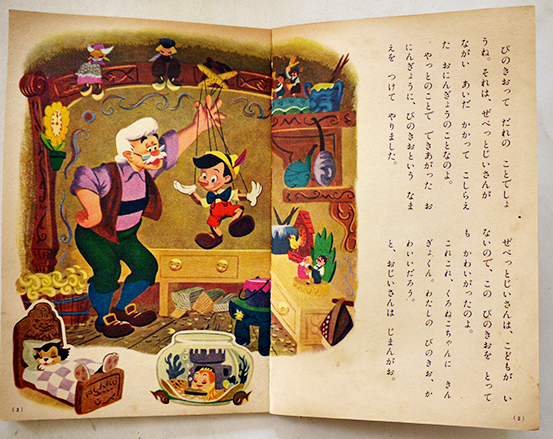 ぴのきおって だれの ことでしょ
うね。それは、ぜぺっとじいさんが
ながい あいだ かかって こしらえ
た おにんぎょうのことなのよ。
やっとのことで できあがった お
にんぎょうに、ぴのきおという なま
えを つけて やりました。
ぜぺっとじいさんは、こどもが い
ないので、この ぴのきおを とって
も かわいがったのよ。
これこれ、くろねこちゃんに きん
ぎょくん。わたしの ぴのきお、か
わいいだろう。
と、おじいさんは じまんがお。
(2)
(3)